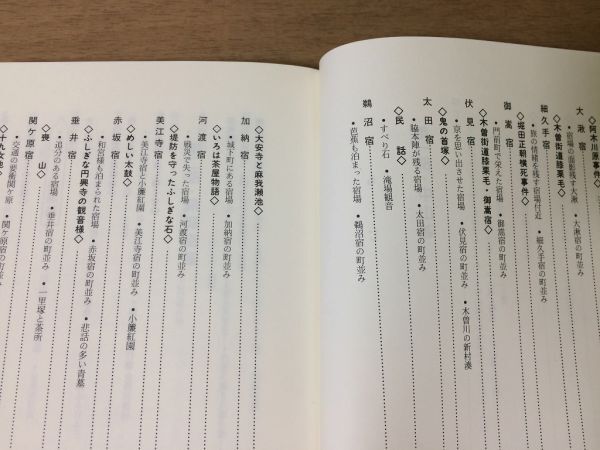 ◇阿木川原事件◇
大湫宿
・宿場の面影残す大湫・大湫宿の町並み
◇木曽街道膝栗毛◇
細久手宿
・旅の情緒を残す宿場付近・細久手宿の町並み
◇堀田正朝横死事件◇
御嵩宿
・門前町で栄えた宿場・御嵩宿の町並み
◇木曽街道膝栗毛・御嵩宿◇
伏見宿
・京を思い出させた宿場・伏見宿の町並み・木曽川の新村湊
◇鬼の首塚◇
太田宿
・脇本陣が残る宿場・太田宿の町並み
◇民話◇
・すべり石・滝場観音
鵜沼宿
・芭蕉も泊まった宿場・鵜沼宿の町並み
◇大安寺と麻我瀬池◇
加納宿
・城下町にある宿場・加納宿の町並み
◇いろは茶屋物語◇
河渡宿
・戦災で失った宿場・河渡宿の町並み
◇堤防を守ったふしぎな石◇
美江寺宿
・美江寺宿と小簾紅園・美江寺宿の町並み・小簾紅園
◇めしい太鼓◇
赤坂宿
・和宮様も泊まられた宿場・赤坂宿の町並み・悲話の多い青墓
◇ふしぎな円興寺の観音様◇
垂井宿
・追分のある宿場・垂井宿の町並み・一里塚と茶所
◇喪山◇
関ケ原宿
・交通の要衝関ケ原・関ケ原宿の町並み
◇十九女池◇